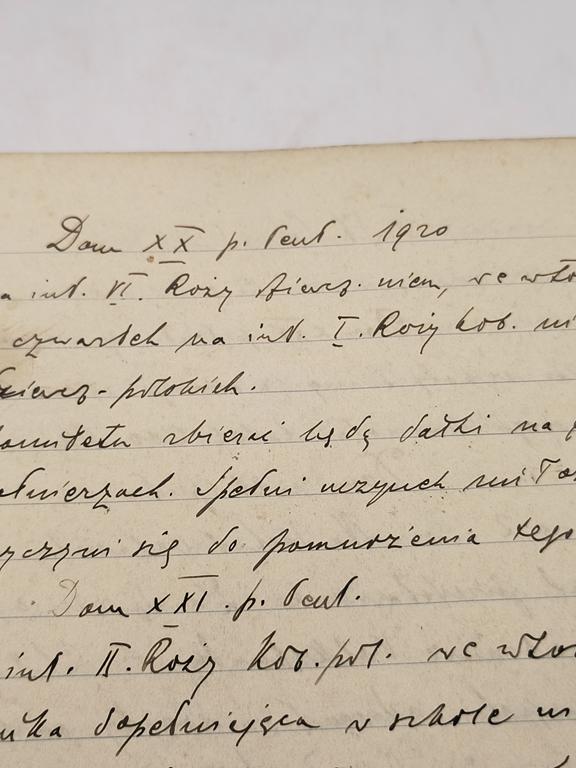 Dom XX p. Pent. 1920
int. VI. Róży dziewcz. niem, we wto
czwartek na int. I. Róży kob. ni
dziewcz. polskich.
Komitetu zbierać będą datki na
żołnierzach. Spełni uczynek miło
yczyni się do pomnożenia tego
Dom XXI. p. Pent.
int. II. Róży kob. pol. we wto
uka dopełniejąca w szkole